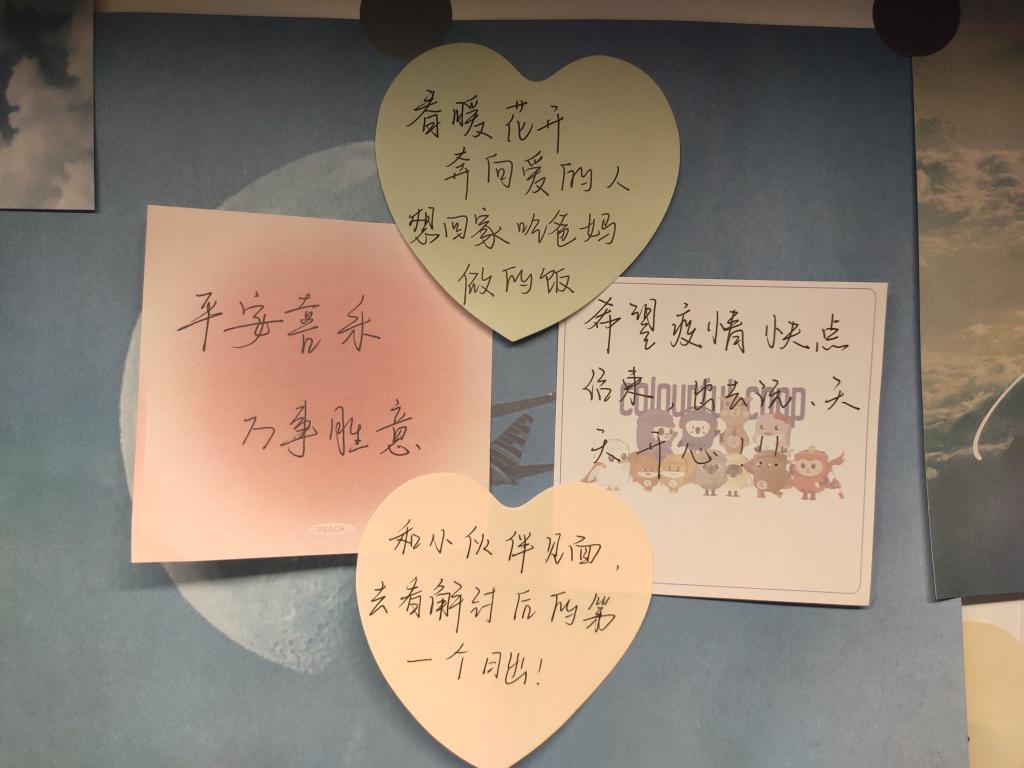 春暖花开
奔向爱的人
想回家吃爸妈
做的饭
平安喜乐
万事胜意
PEACH
希望疫情快点
结束 出去玩、天
天开心!!
和小伙伴见面,
去看解封后的第
一个日出!